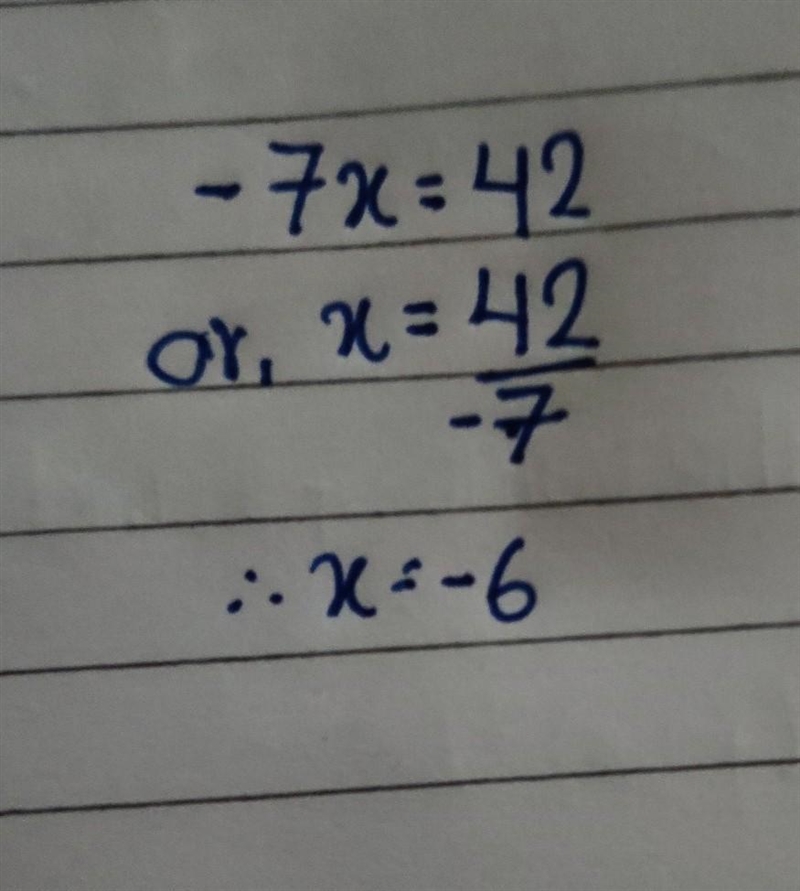 -7x = 42
or, x = 42/-7
∴ x = -6